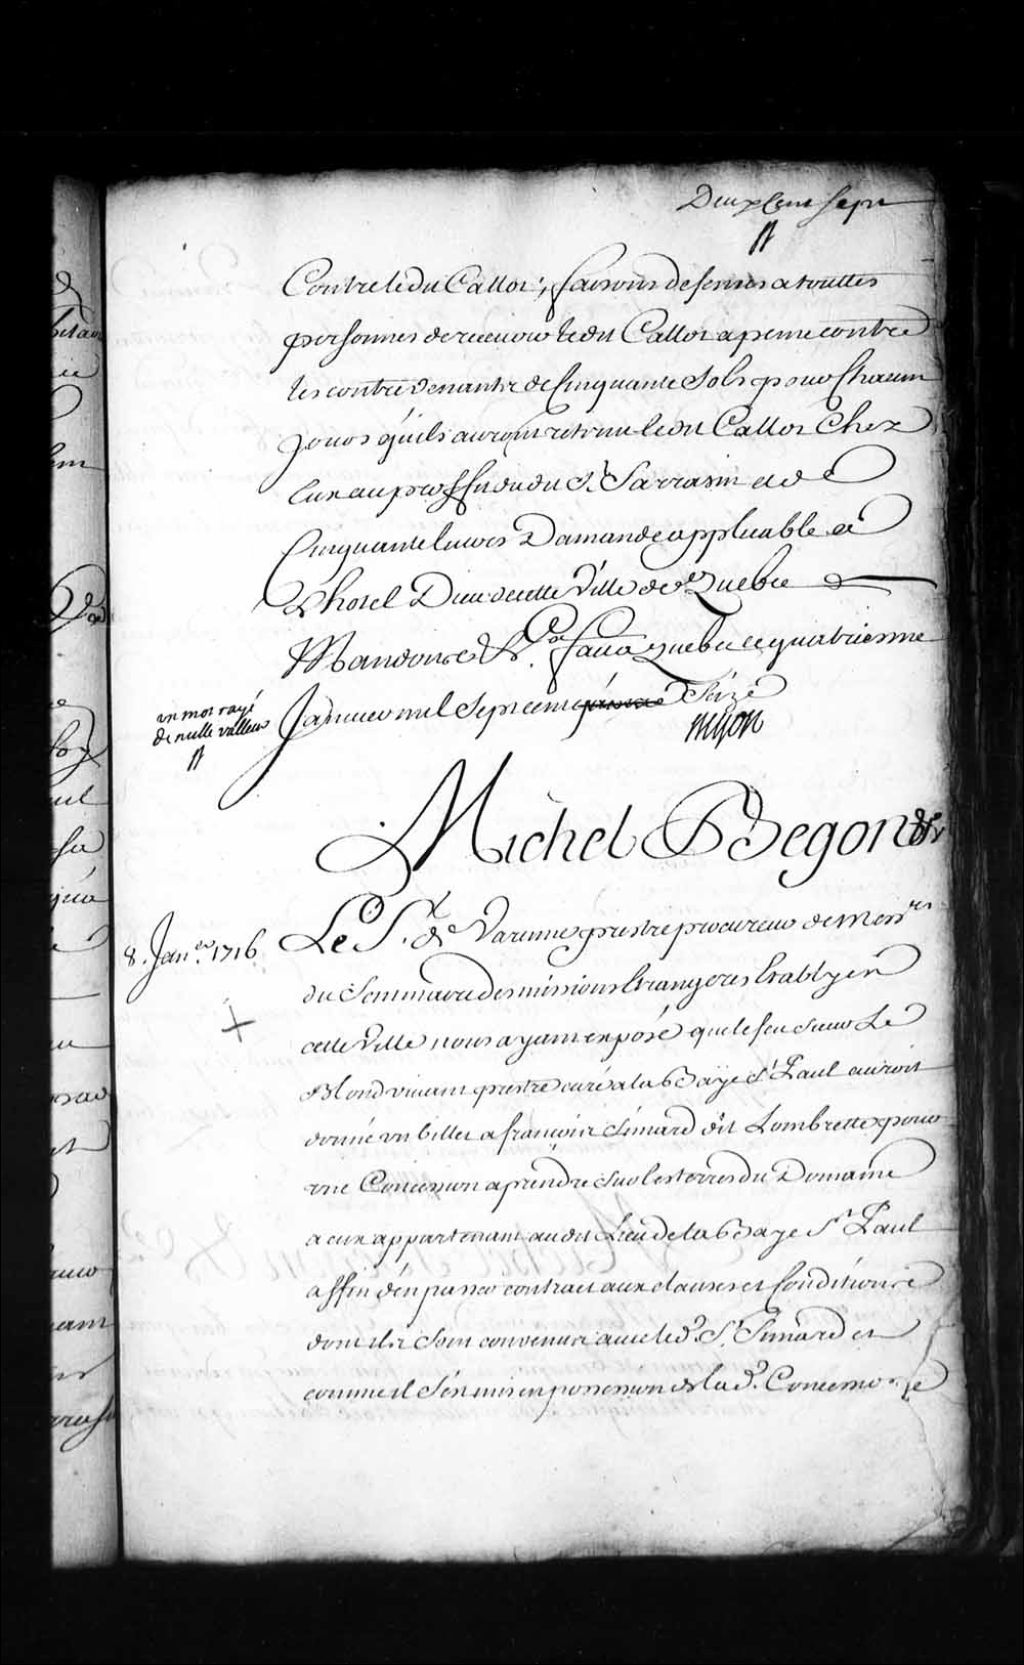 Deux Cent Sept
Contre ledit Callot, faisons defenses a touttes
personnes de recevoir ledit Callot a peine contre
les contrevenants de Cinquante Sols pour Chacun
Jours qu'ils auront retenu ledit Callot Chez
Eux au proffit dudit Sr. Sarrasin et de
Cinquante livres Damande applicable a
Lhotel Dieu de cette Ville de Quebec
Mandons &a. fait a Quebec ce quatriesme
Janvier mil Sept cent Seize
un mot rayé
de nulle valleur
Michel Begon &c
8. Janer. 1716
Le Sr. de Varenne prestre procureur de Messrs
du Seminaire des missions Etrangeres Etably en
cette Ville nous ayant exposé que le feu sieur Le
Blond vivant prestre curé a la Baÿe St Paul auroit
donné un billet a francois Simard dit Lombrette pour
une Concession a prendre sur les terres du Domaine
a eux appartenant audit Lieu de la Baye St Paul
affin d'en passer contract aux clauses et Conditions
dont ils sont convenus avec led. St. Simard et
comme il s'est mis en possession de lad. Concession